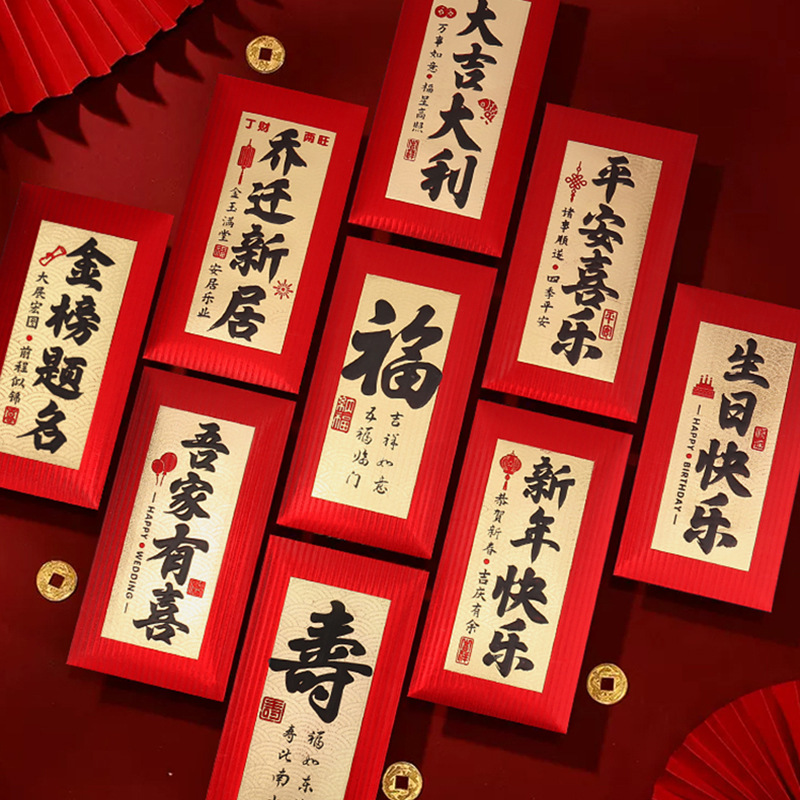 大吉大利
万事如意·福星高照
丁财 两旺
乔迁新居
金玉满堂
安居乐业
平安喜乐
诸事顺遂·四季平安
平安
金榜题名
大展宏图·前程似锦
福
吉祥如意
五福临门
生日快乐
HAPPY BIRTHDAY
吾家有喜
HAPPY WEDDING
新年快乐
恭贺新春·吉庆有余
寿
福如东
寿比南